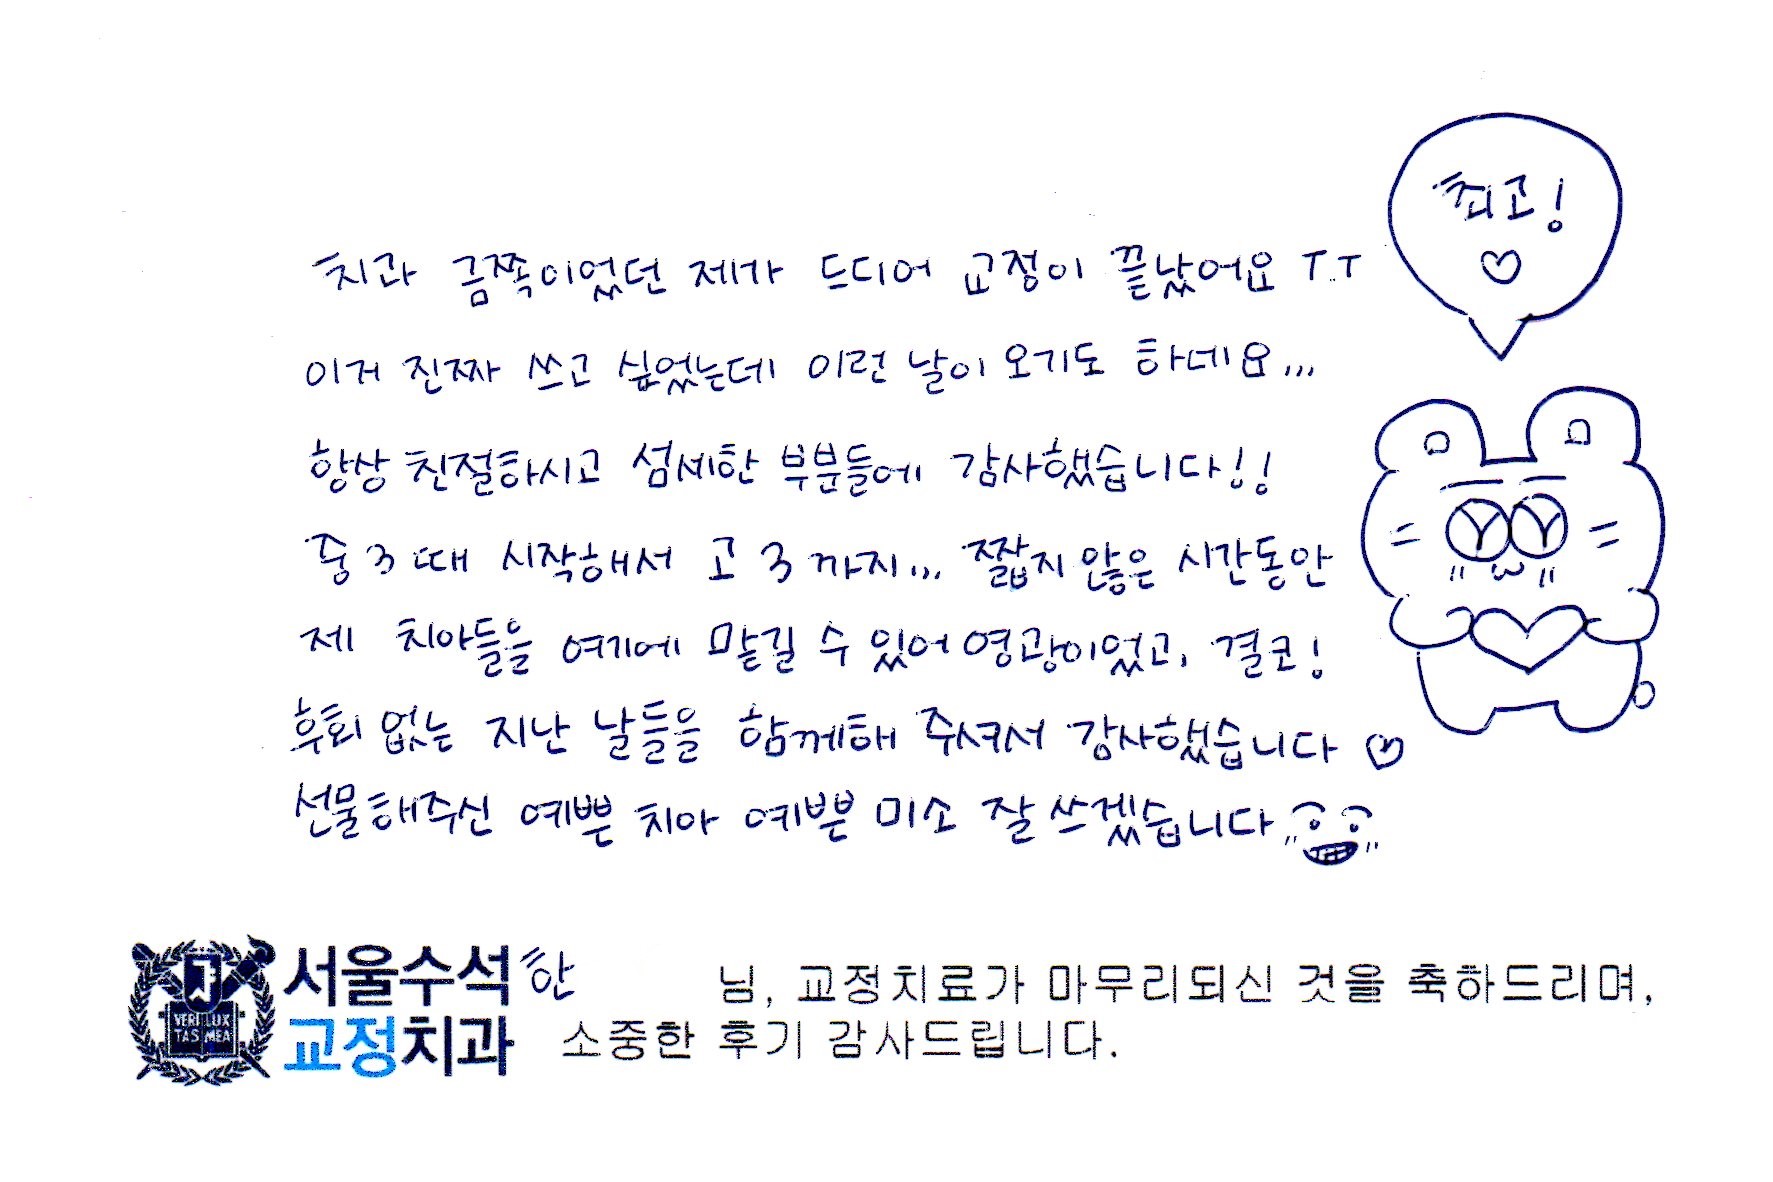 최고!
♡
치과 금쪽이었던 제가 드디어 교정이 끝났어요 T.T
이거 진짜 쓰고 싶었는데 이런 날이 오기도 하네요...
항상 친절하시고 섬세한 부분들에 감사했습니다!!
중3 때 시작해서 고3까지... 짧지 않은 시간동안
제 치아들을 여기에 맡길 수 있어 영광이었고, 결코!
후회 없는 지난 날들을 함께해 주셔서 감사했습니다 ♡
선물해주신 예쁜 치아 예쁜 미소 잘 쓰겠습니다
서울수석 한 님, 교정치료가 마무리되신 것을 축하드리며,
교정치과 소중한 후기 감사드립니다.
VERI LUX
TAS MEA